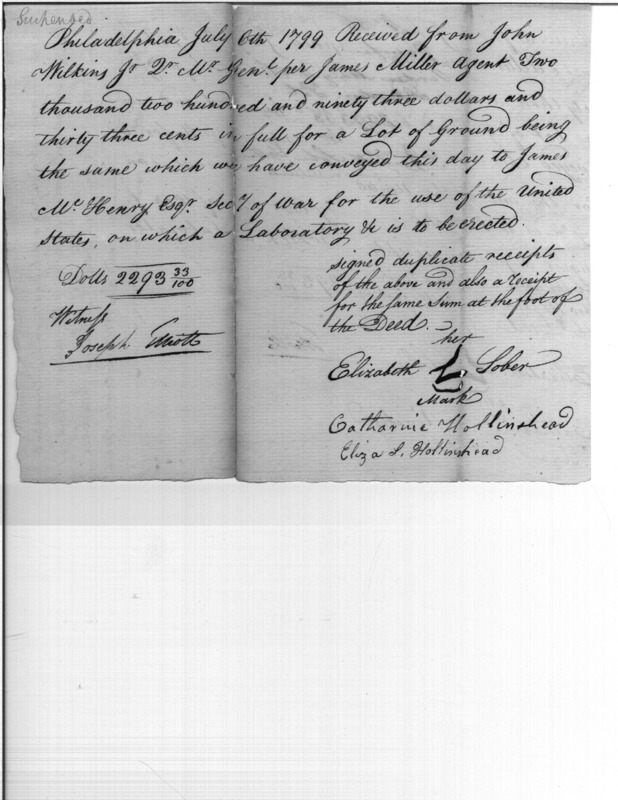 Suspended
Philadelphia July 6th 1799 Received from John
Wilkins Jr Qr. Mr. Genl. per James Miller Agent Two
thousand two hundred and ninety three dollars and
thirty three cents in full for a Lot of Ground being
the same which we have conveyed this day to James
Mc. Henry Esqr. Secy of War for the use of the United
States, on which a Laboratory &c is to be erected.
signed duplicate receipts
of the above and also a receipt
for the same Sum at the foot of
the Deed.
Dolls 2293 33/100
Witness
Joseph
her
Elizabeth L. Sober
Mark
Catharine Hollinshead
Eliza S. Hollinshead